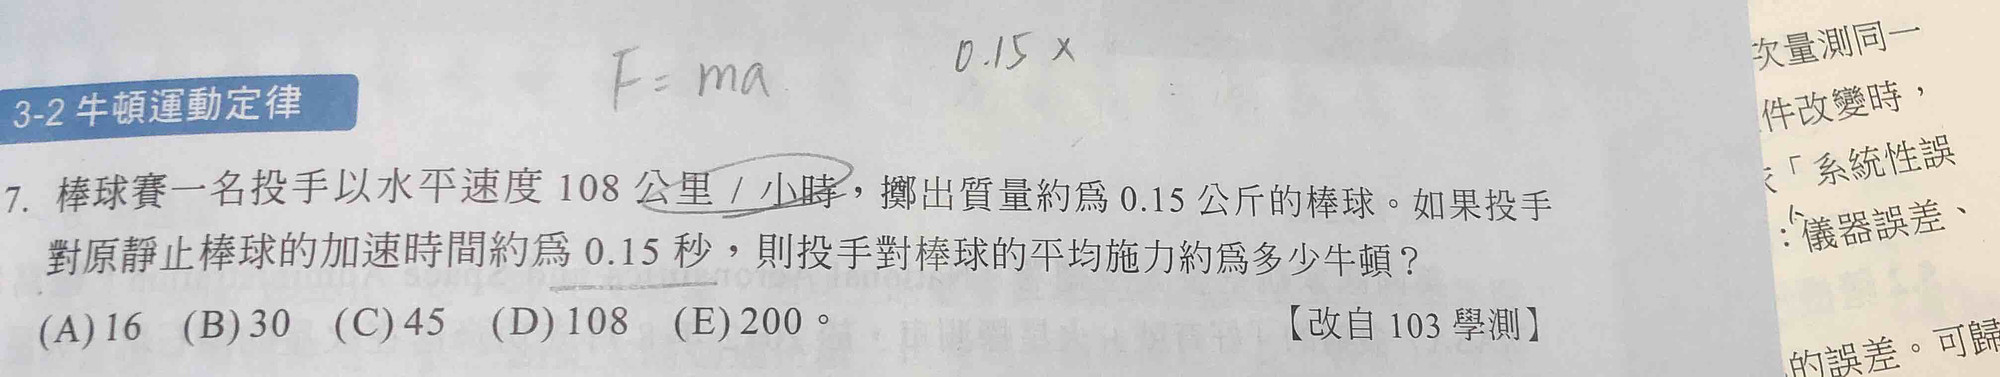 F = ma
0.15 ×
3-2 牛頓運動定律
7. 棒球賽一名投手以水平速度 108 公里 / 小時，擲出質量約為 0.15 公斤的棒球。如果投手
對原靜止棒球的加速時間約為 0.15 秒，則投手對棒球的平均施力約為多少牛頓？
(A) 16 (B) 30 (C) 45 (D) 108 (E) 200。
【改自 103 學測】
次量測同一
件改變時，
「系統性誤
：儀器誤差、
的誤差。可歸